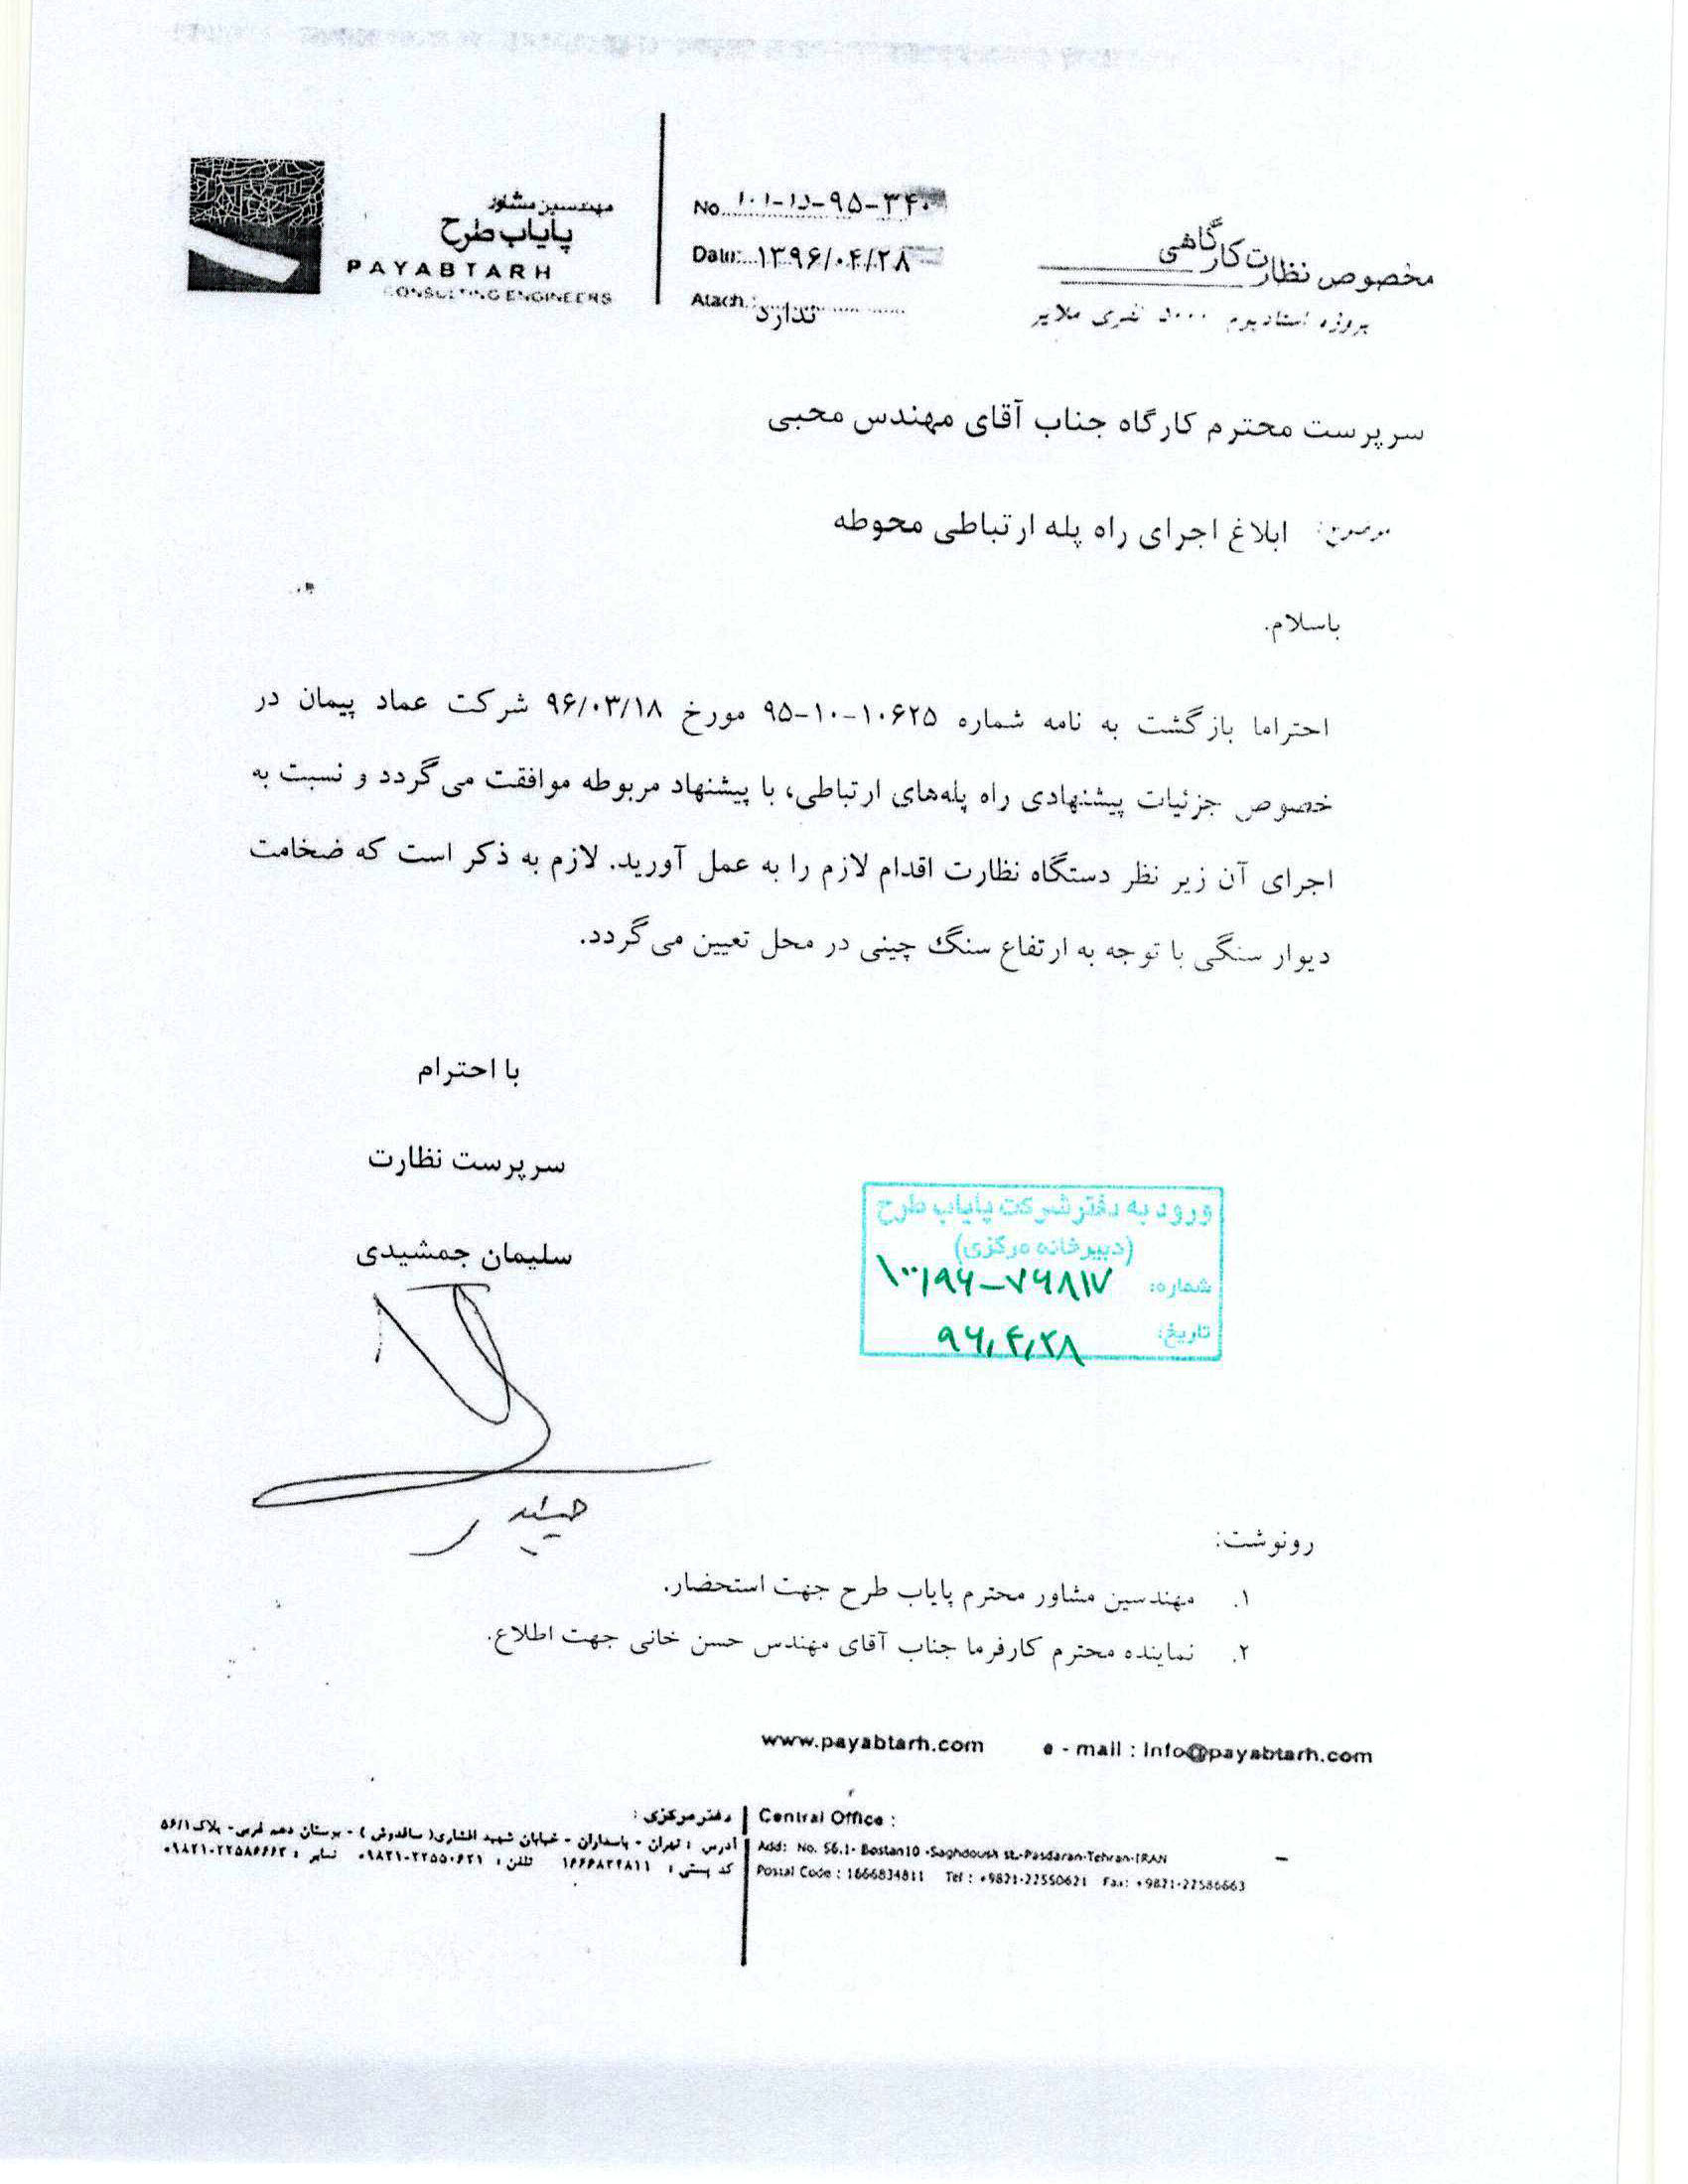 مهندسین مشاور
پایاب طرح
PAYABTARH
CONSULTING ENGINEERS
No
Date: ۱۳۹۶/۰۴/۲۸
Atach.: ندارد
مخصوص نظارت کارگاهی
پروژه استادیوم ۵۰۰۰ نفری ملایر
سرپرست محترم کارگاه جناب آقای مهندس محبی
موضوع: ابلاغ اجرای راه پله ارتباطی محوطه
باسلام.
احتراما بازگشت به نامه شماره ۱۰۶۲۵-۱۰-۹۵ مورخ ۹۶/۰۳/۱۸ شرکت عماد پیمان در
خصوص جزئیات پیشنهادی راه پله‌های ارتباطی، با پیشنهاد مربوطه موافقت می‌گردد و نسبت به
اجرای آن زیر نظر دستگاه نظارت اقدام لازم را به عمل آورید. لازم به ذکر است که ضخامت
دیوار سنگی با توجه به ارتفاع سنگ چینی در محل تعیین می‌گردد.
با احترام
سرپرست نظارت
سلیمان جمشیدی
ورود به دفتر شرکت پایاب طرح
(دبیرخانه مرکزی)
شماره: ۱۰۰/۹۶-۷۶۸۱۷
تاریخ: ۹۶/۴/۲۸
رونوشت:
۱. مهندسین مشاور محترم پایاب طرح جهت استحضار.
۲. نماینده محترم کارفرما جناب آقای مهندس حسن خانی جهت اطلاع.
www.payabtarh.com e - mail : info@payabtarh.com
دفتر مرکزی :
آدرس : تهران - پاسداران - خیابان شهید افشاری( ساقدوش ) - بوستان دهم غربی- پلاک ۵۶/۱
کد پستی : ۱۶۶۶۸۳۴۸۱۱ تلفن : ۰۹۸۲۱-۲۲۵۵۰۶۲۱ نمابر : ۰۹۸۲۱-۲۲۵۸۶۶۶۳
Central Office :
Add: No. 56.1- Bostan10 -Saghdoush st.-Pasdaran-Tehran-IRAN
Postal Code : 1666834811 Tel : +9821-22550621 Fax: +9821-22586663